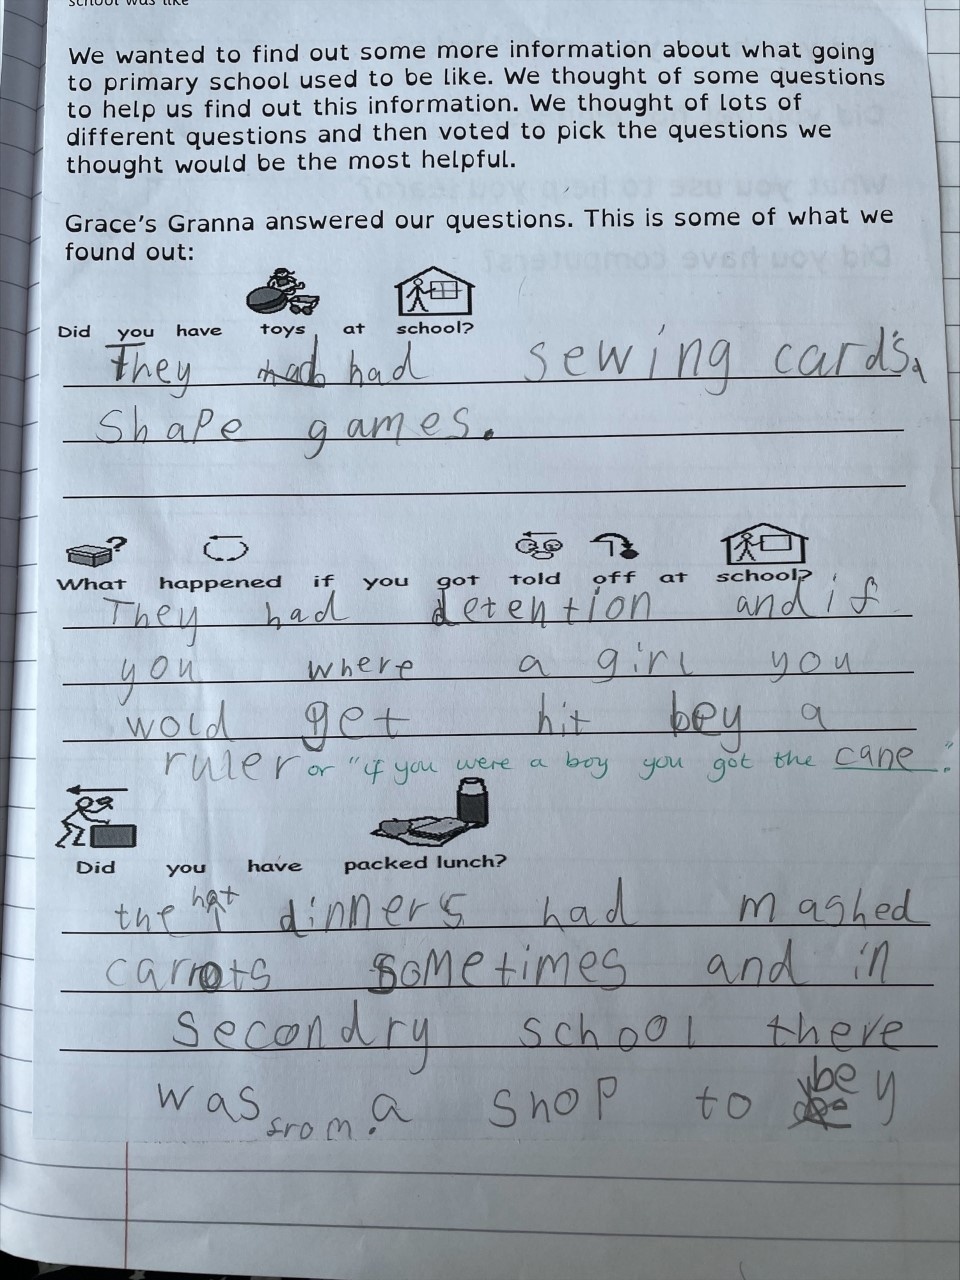 school was like
We wanted to find out some more information about what going
to primary school used to be like. We thought of some questions
to help us find out this information. We thought of lots of
different questions and then voted to pick the questions we
thought would be the most helpful.
Grace's Granna answered our questions. This is some of what we
found out:
Did you have toys at school?
They had had sewing card's,
Shape games.
What happened if you got told off at school?
They had detention and if
you where a girl you
wold get hit bey a
ruler or "if you were a boy you got the cane."
Did you have packed lunch?
the hot dinners had mashed
carrots sometimes and in
Secondry school there
was a shop to bey
from.